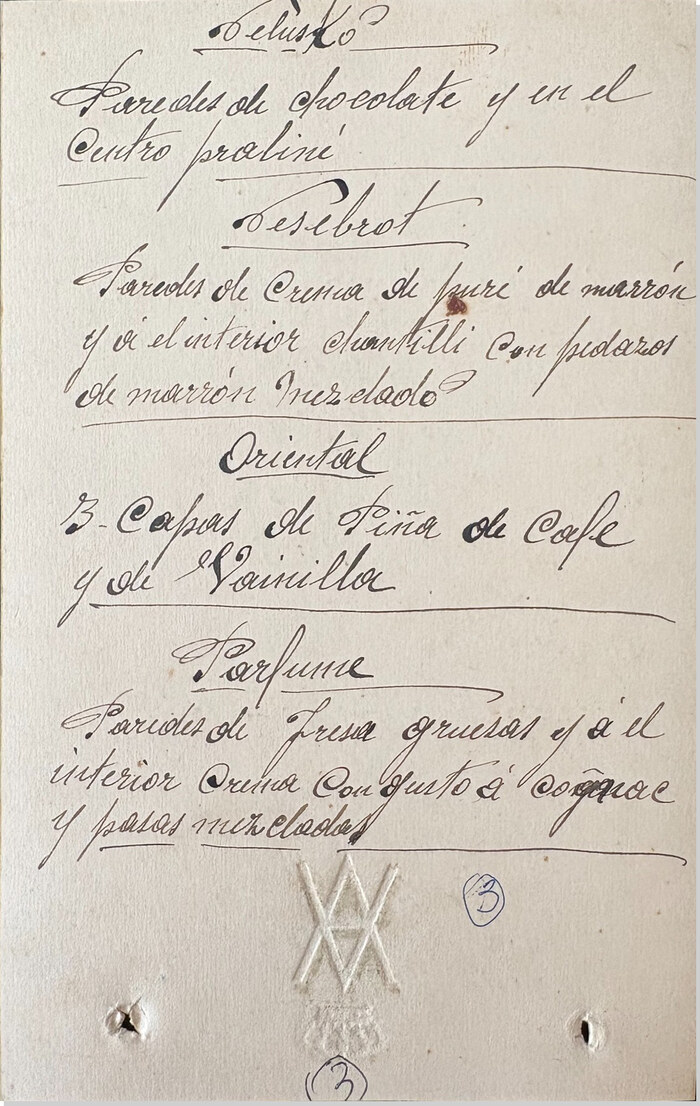 Pelusko
Paredes de chocolate y en el
Centro praliné
Pesebrot
Paredes de Crema de puré de marrón
y á el interior chantilli con pedazos
de marrón mezclado
Oriental
3-Capas de Piña de Cafe
y de Vainilla
Parfume
Paredes de Fresa gruesas y á el
interior Crema Con gusto á coñac
y pasas mezcladas
3
3